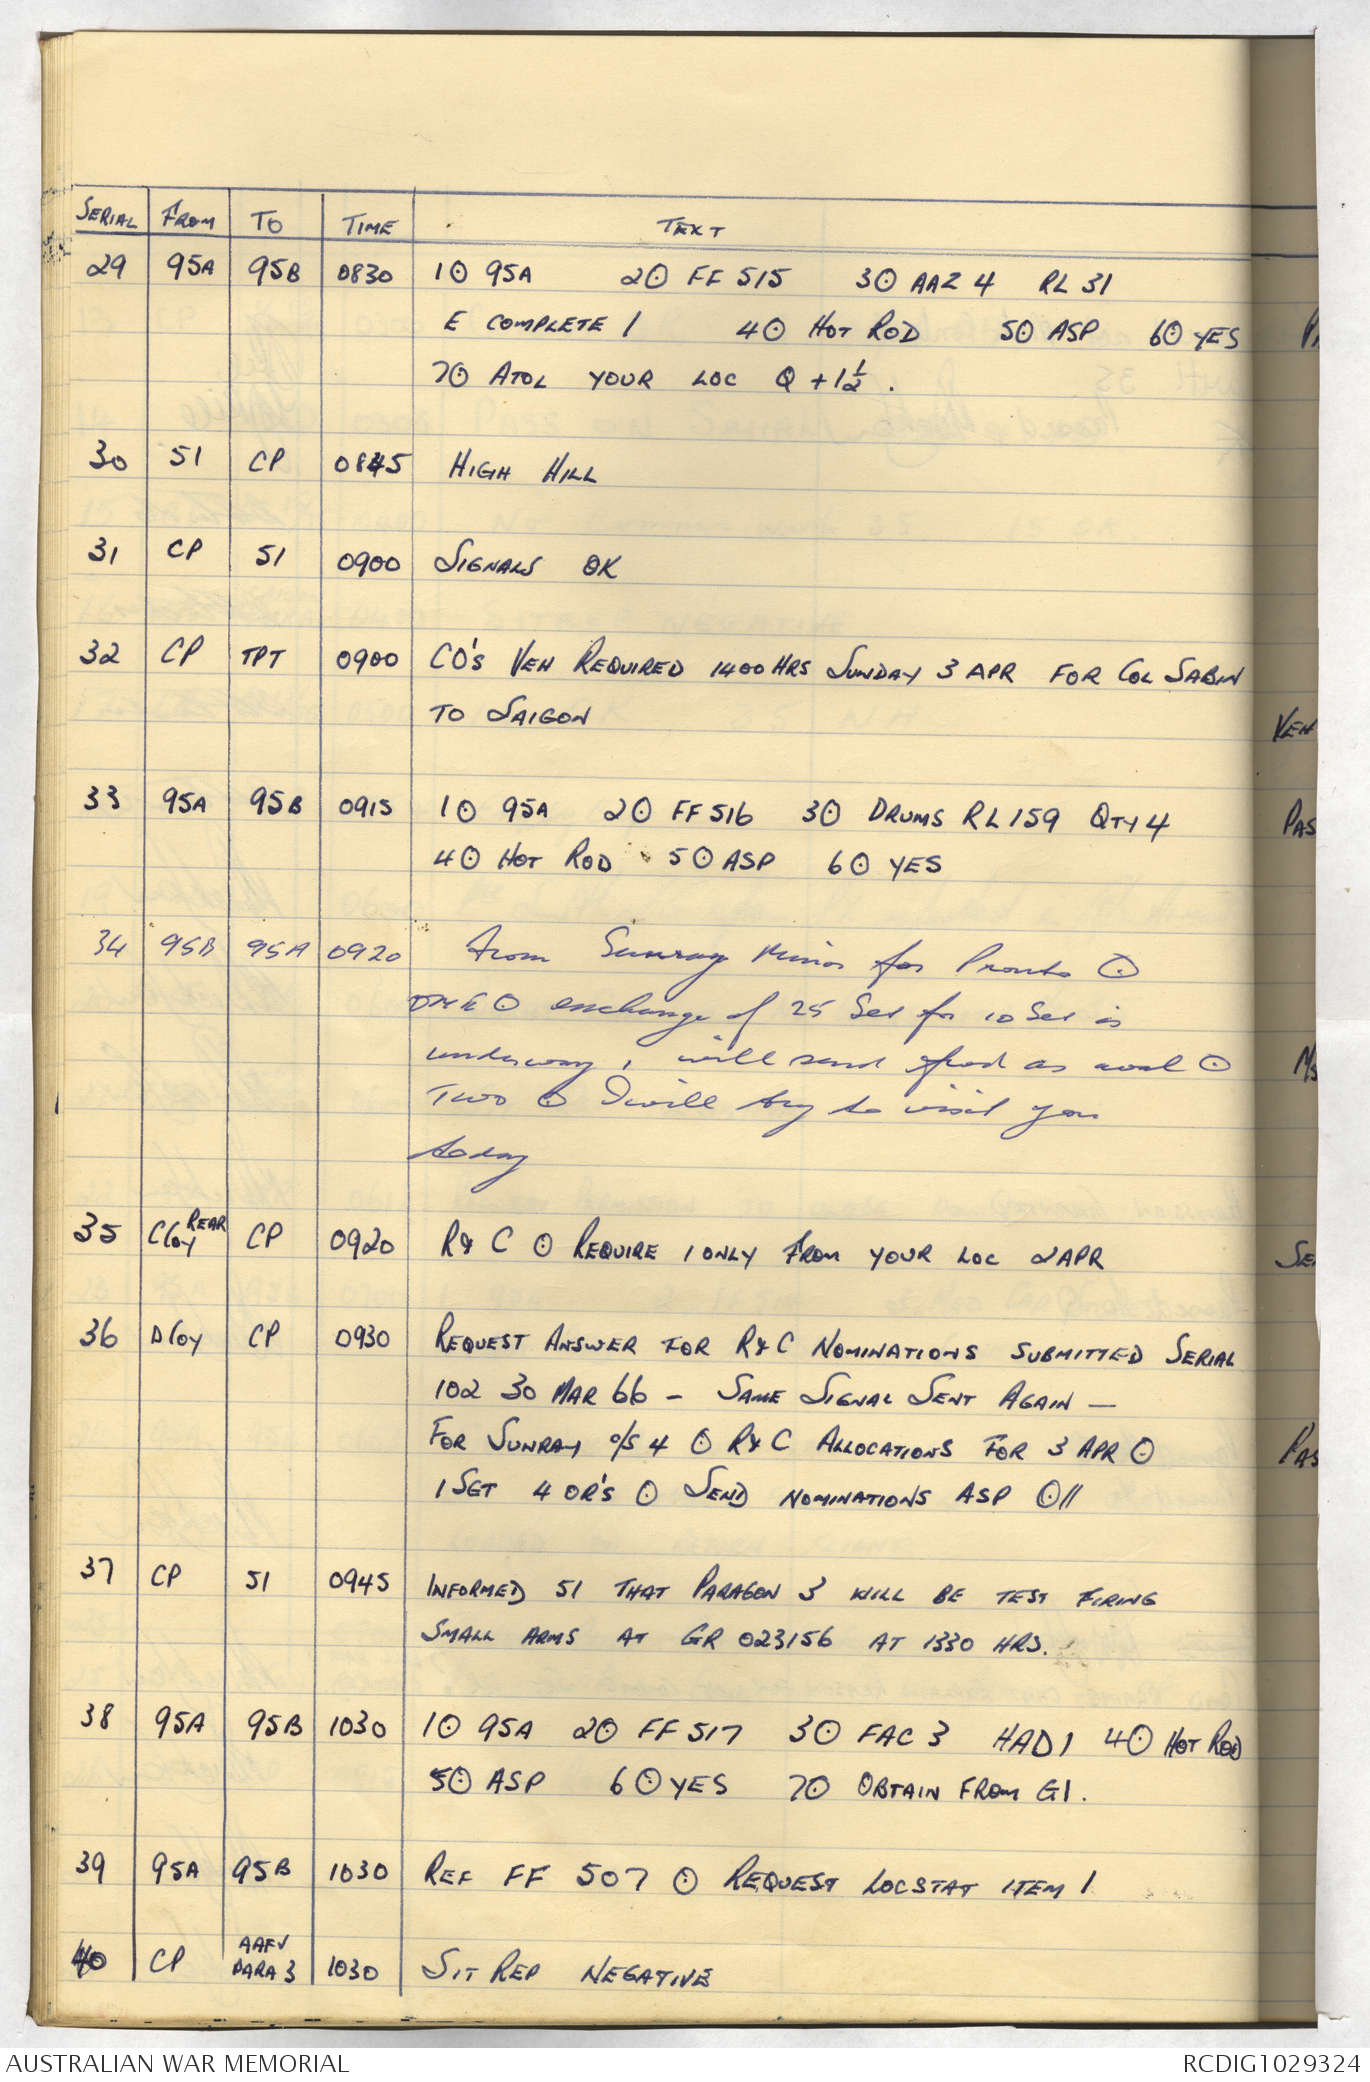 SERIAL FROM TO TIME TEXT
29 95A 95B 0830 1⊙ 95A 2⊙ FF 515 3⊙ AAZ 4 RL 31
E COMPLETE 1 4⊙ HOT ROD 5⊙ ASP 6⊙ YES
7⊙ ATOL YOUR LOC Q + 1½ .
30 51 CP 0845 HIGH HILL
31 CP 51 0900 SIGNALS OK
32 CP TPT 0900 CO'S VEH REQUIRED 1400 HRS SUNDAY 3 APR FOR COL SABIN
TO SAIGON
VEH
33 95A 95B 0915 1⊙ 95A 2⊙ FF 516 3⊙ DRUMS RL 159 QTY 4
PAS
4⊙ HOT ROD 5⊙ ASP 6⊙ YES
34 95B 95A 0920 From Sunray Minor for Pronto ⊙
ONE ⊙ exchange of 25 Set for 10 Set is
underway, will send fwd as avail ⊙
TWO ⊙ I will try to visit you
today
35 C Coy REAR CP 0920 R & C ⊙ REQUIRE 1 ONLY FROM YOUR LOC 2 APR
36 D Coy CP 0930 REQUEST ANSWER FOR R & C NOMINATIONS SUBMITTED SERIAL
102 30 MAR 66 — SAME SIGNAL SENT AGAIN —
FOR SUNRAY O/S 4 ⊙ R & C ALLOCATIONS FOR 3 APR ⊙
PAS
1 SGT 4 OR'S ⊙ SEND NOMINATIONS ASP ⊙//
37 CP 51 0945 INFORMED 51 THAT PARAGON 3 WILL BE TEST FIRING
SMALL ARMS AT GR 023156 AT 1330 HRS.
38 95A 95B 1030 1⊙ 95A 2⊙ FF 517 3⊙ FAC 3 HAD 1 4⊙ HOT ROD
5⊙ ASP 6⊙ YES 7⊙ OBTAIN FROM G1.
39 95A 95B 1030 REF FF 507 ⊙ REQUEST LOCSTAT ITEM 1
40 CP AAFV PARA 3 1030 SIT REP NEGATIVE
AUSTRALIAN WAR MEMORIAL RCDIG1029324